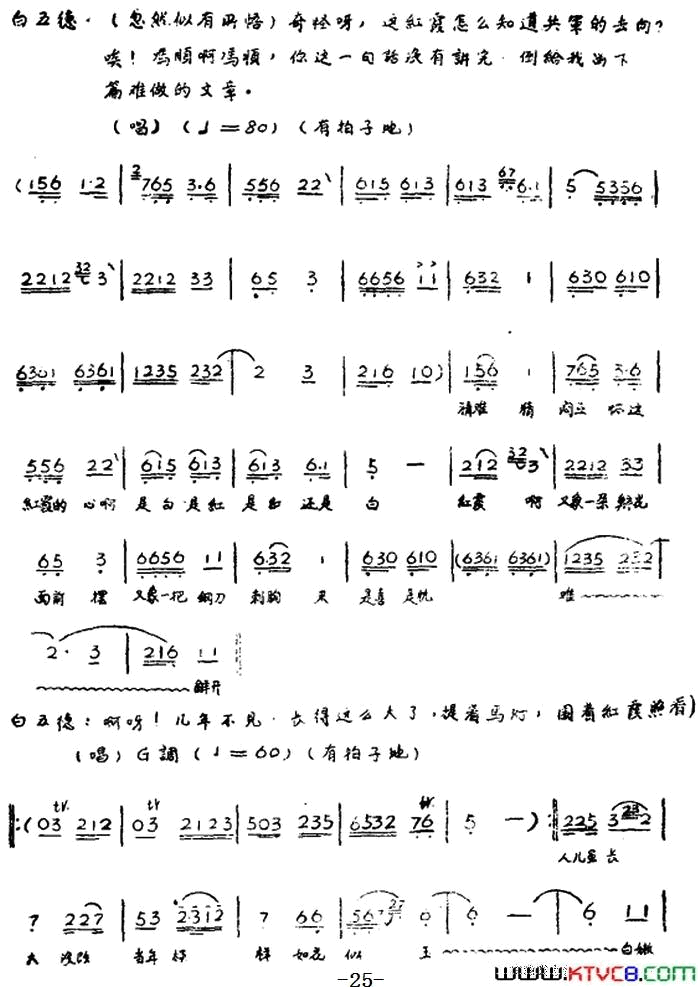 白五德:(忽然似有所悟)奇怪呀,这紅霞怎么知道共軍的去向?
唉!馮順啊馮順,你这一句話没有講完.倒給我出下
篇难做的文章。
(唱)(♩=80)(有拍子地)
(156 1·2 | 2765 3·6 | 556 22 | 615 613 | 613 67 6·1 | 5 5356 |
2212 32 3 | 2212 33 | 65 3 | 6656 11 | 632 1 | 630 610 |
6301 6361 | 1235 232 | 2 3 | 216 10) | 156 1 | 765 3·6 |
猜难 猜 你这
556 22 | 615 613 | 613 6·1 | 5 — | 212 32 3 | 2212 33 |
紅霞的 心啊 是白 是紅 是紅 还是 白 紅霞 啊 又象一朵 鮮花
65 3 | 6656 11 | 632 1 | 630 610 | (6361 6361) | 1235 232 |
面前 摆 又象一把 鋼刀 刺胸 来 是喜 是忧 难
2· 3 | 216 11
解开
白五德:啊呀!几年不见.长得这么大了,提着馬灯,围着紅霞照看)
(唱)G調(♩=60)(有拍子地)
:(03 212 | 03 2123 | 503 235 | 6532 76 | 5 —) : 225 3 23 2 |
人儿虽 长
7 227 | 53 2·312 | 7 66 | 567 27 6 | 6 — | 6 11 |
大 没改 当年 样 如花 似 玉 白嫩
-25-
WWW.KTVC8.COM